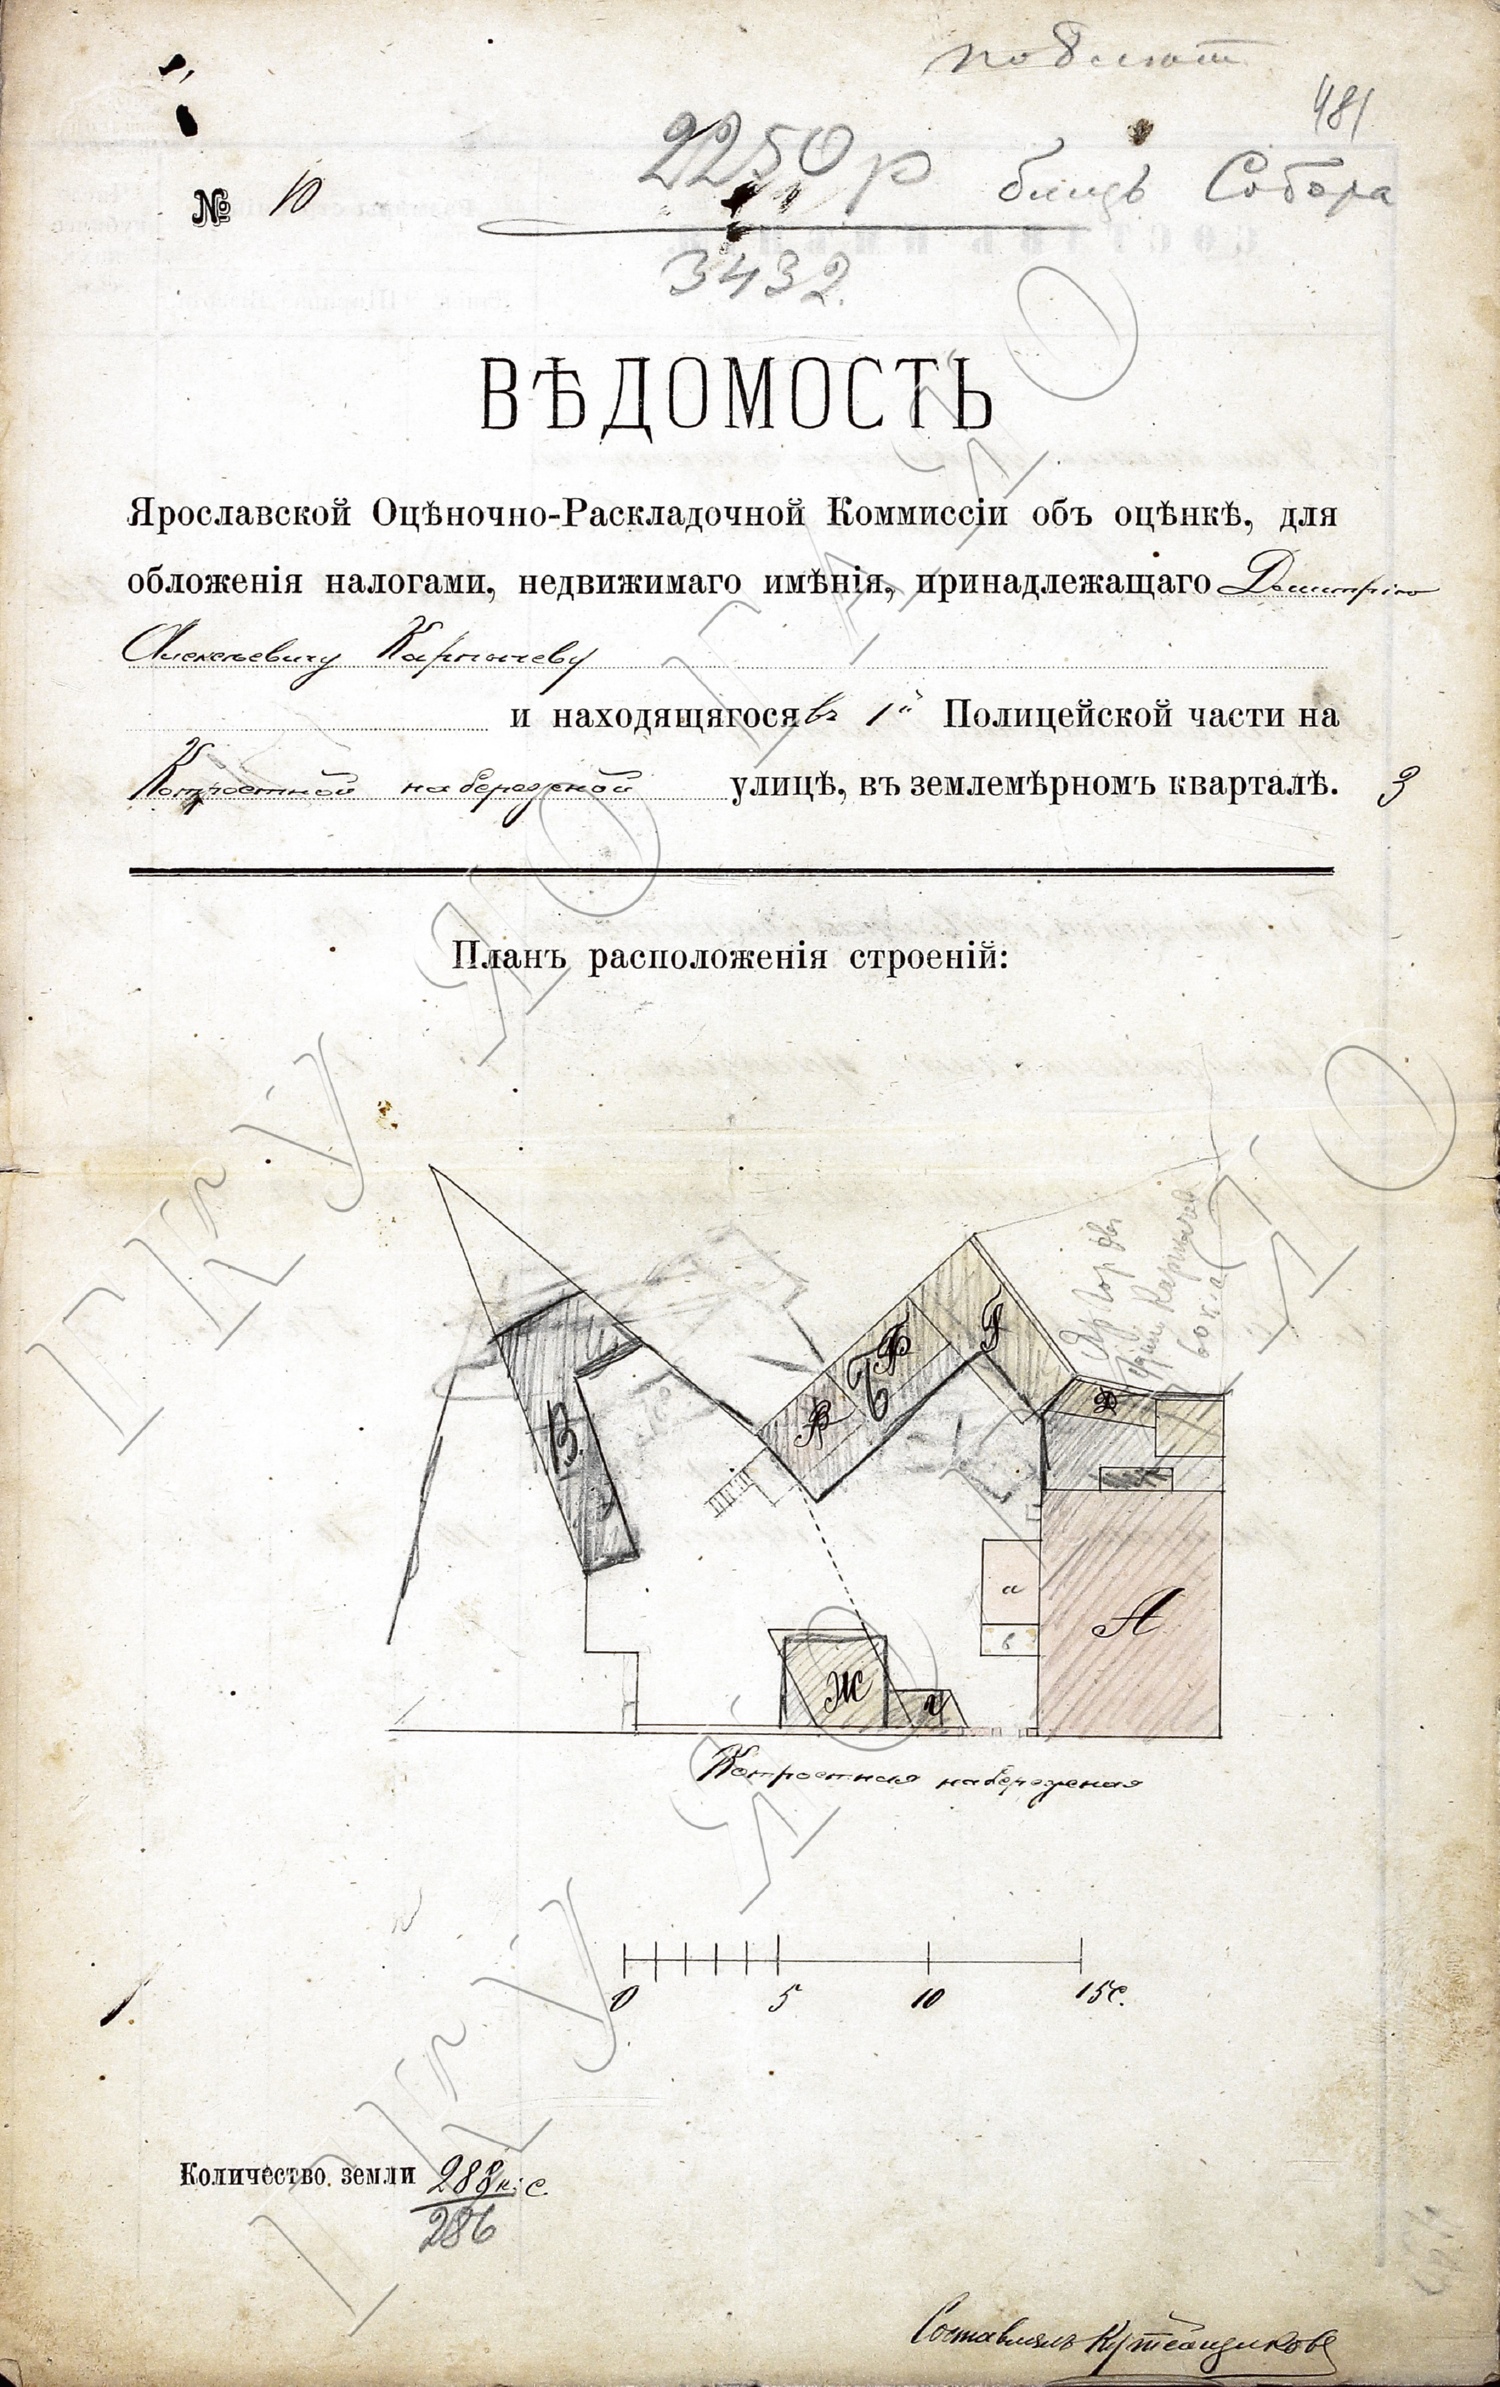 481
2250 р
близъ Собора
№ 10
3432.
ВѢДОМОСТЬ
Ярославской Оцѣночно-Раскладочной Коммиссіи объ оцѣнкѣ, для
обложенія налогами, недвижимаго имѣнія, принадлежащаго Дмитрію
Алексѣевичу Карпычеву
и находящягося въ 1й Полицейской части на
Которостной набережной улицѣ, въ землемѣрномъ кварталѣ. 3
Планъ расположенія строеній:
Г
Б
В
Д
В.
а
А
в
Ж
Которостная набережная
0 5 10 15 с.
Количество земли 288 к. с.
286
Составлялъ
ГКУ ЯО ГАЯО
ГКУ ЯО ГАЯО